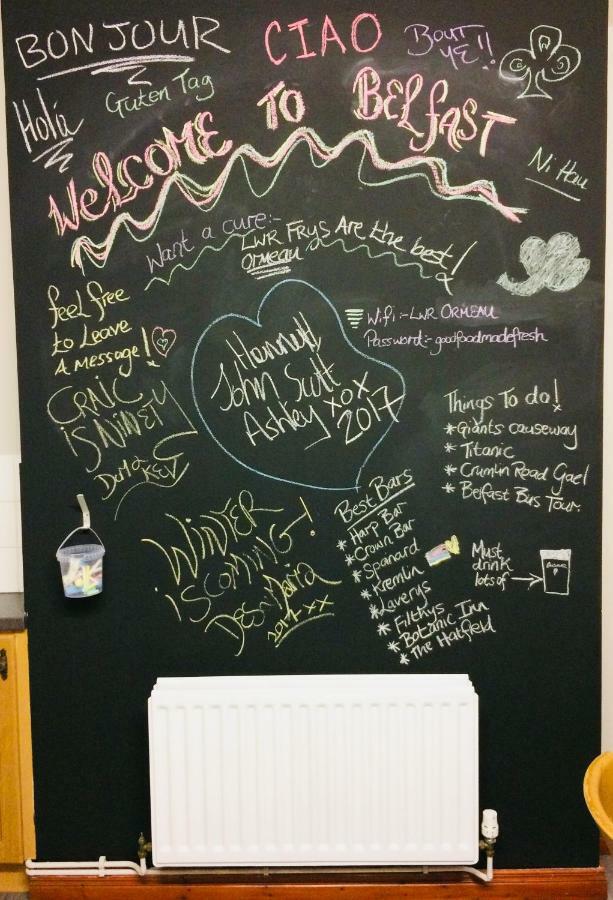 BONJOUR
CIAO
Bout
YE!!
Hola
Guten Tag
WELCOME TO BELFAST
Ni Hau
Want a cure:-
LWR FRYS Are the best!
Ormeau
feel free
to Leave
A message!
Wifi:- LWR ORMEAU
Password:- goodfoodmadefresh
Hannah
John Scott
Ashley xox
2017
CRAIC
iS NINETY
Things To do!
*Giants causeway
*Titanic
*Crumlin Road Gael
*Belfast Bus Tour.
Best Bars
*Harp Bar
*Crown Bar
*Spanard
*Kremlin
*Laverys
*Filthys
*Botanic Inn
*The Hatfield
Must
drink
lots of →
WINTER
iS COMING!
2017 xx